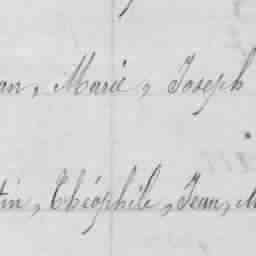 an, Marie, Joseph
tin, Théophile, Jean, M